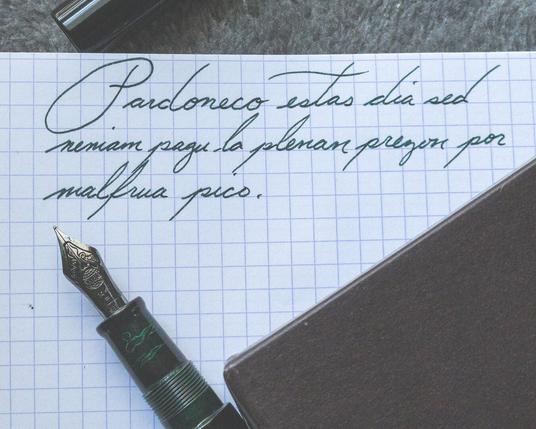 Pardoneco estas dia sed
neniam pagu la plenan prezon por
malfrua pico.